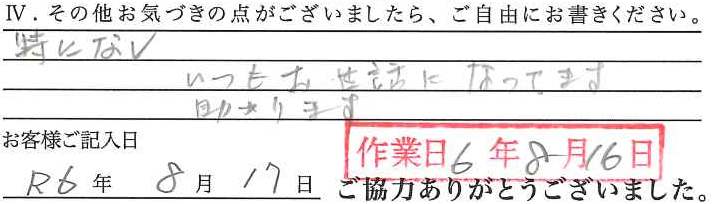 Ⅳ．その他お気づきの点がございましたら、ご自由にお書きください。
特になし
いつもお世話になってます
助かります
お客様ご記入日
作業日6年8月16日
R6年 8月17日 ご協力ありがとうございました。